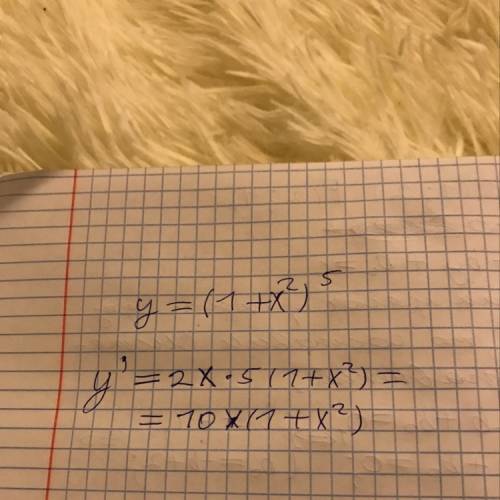 y = (1+x²)⁵
y' = 2x·5(1+x²) =
= 10x(1+x²)